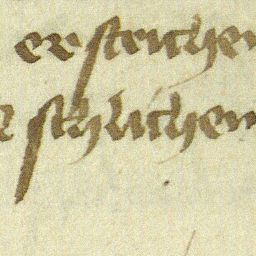 ersteichen
schlichen